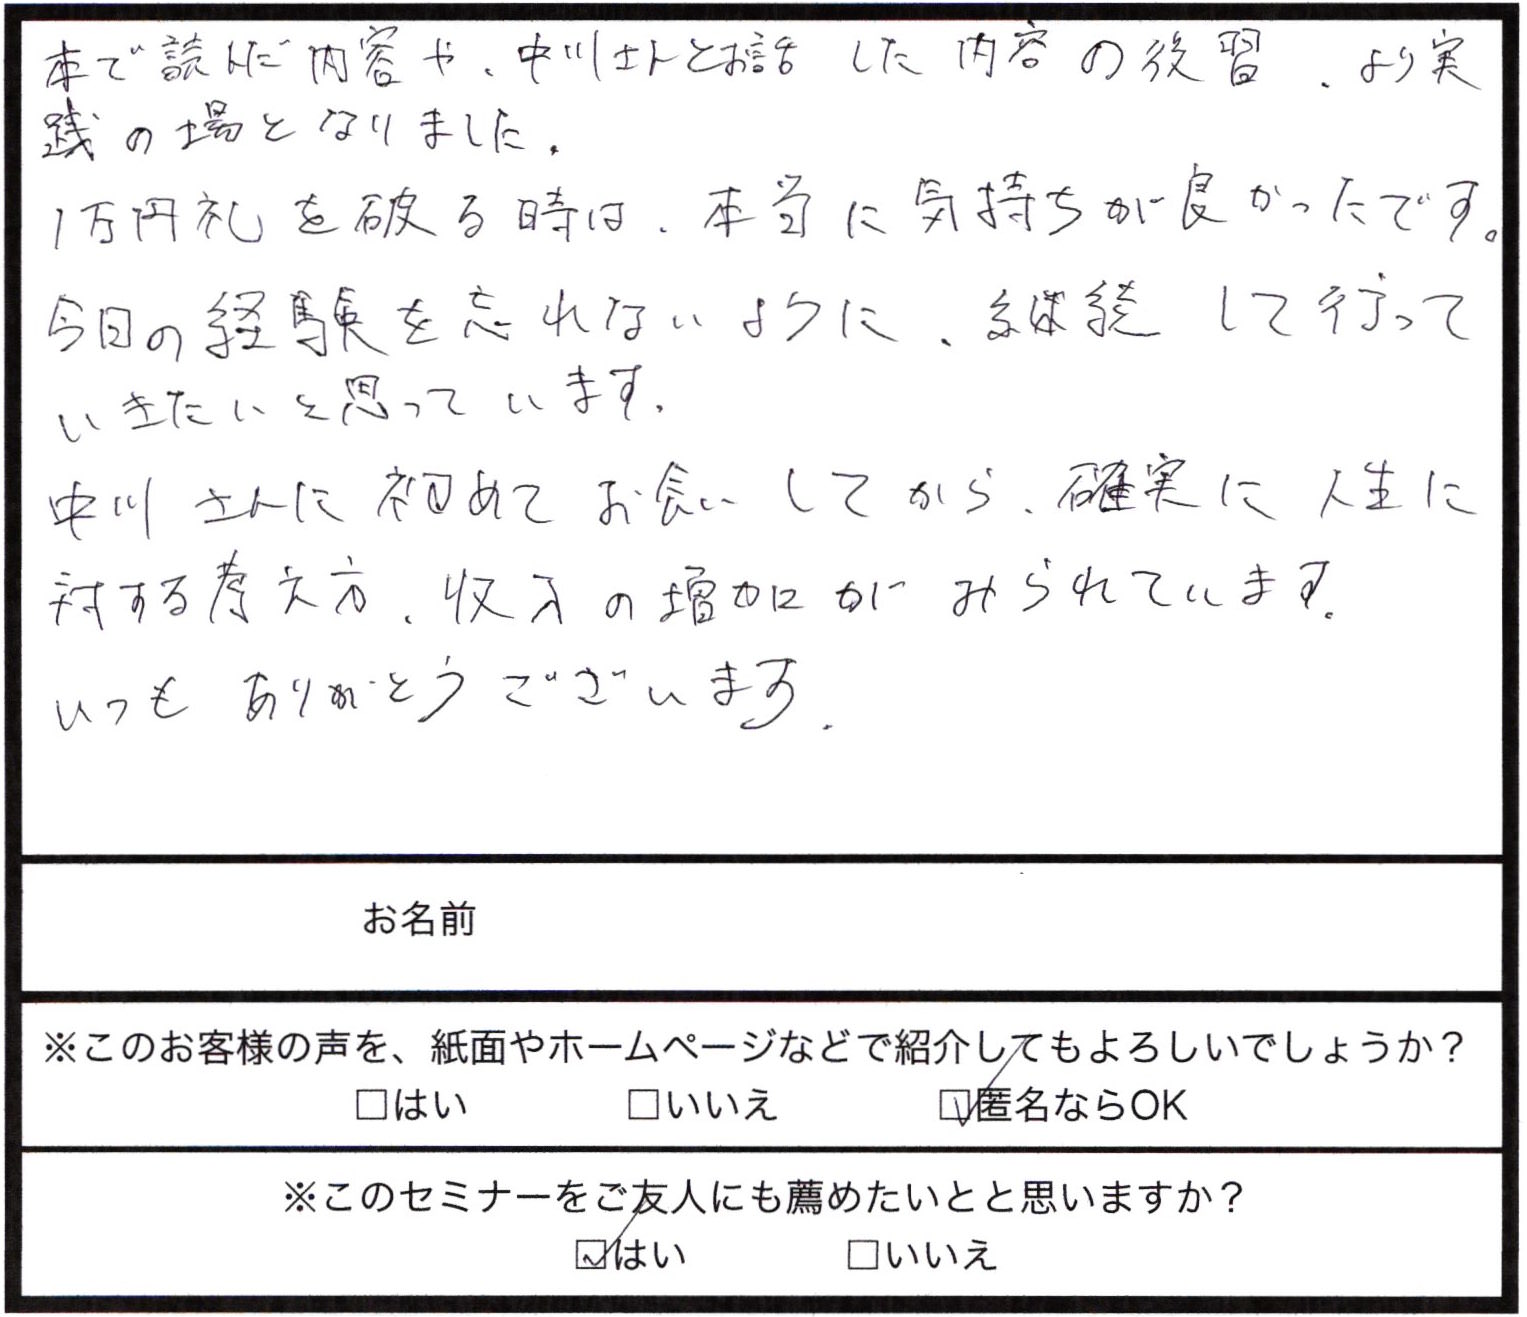 本で読んだ内容や、中川さんとお話した内容の復習、より実
践の場となりました。
1万円札を破る時は、本当に気持ちが良かったです。
今日の経験を忘れないように、継続して行って
いきたいと思っています。
中川さんに初めてお会いしてから、確実に人生に
対する考え方、収入の増加がみられています。
いつもありがとうございます。
お名前
※このお客様の声を、紙面やホームページなどで紹介してもよろしいでしょうか?
□はい □いいえ ☑匿名ならOK
※このセミナーをご友人にも薦めたいとと思いますか?
☑はい □いいえ